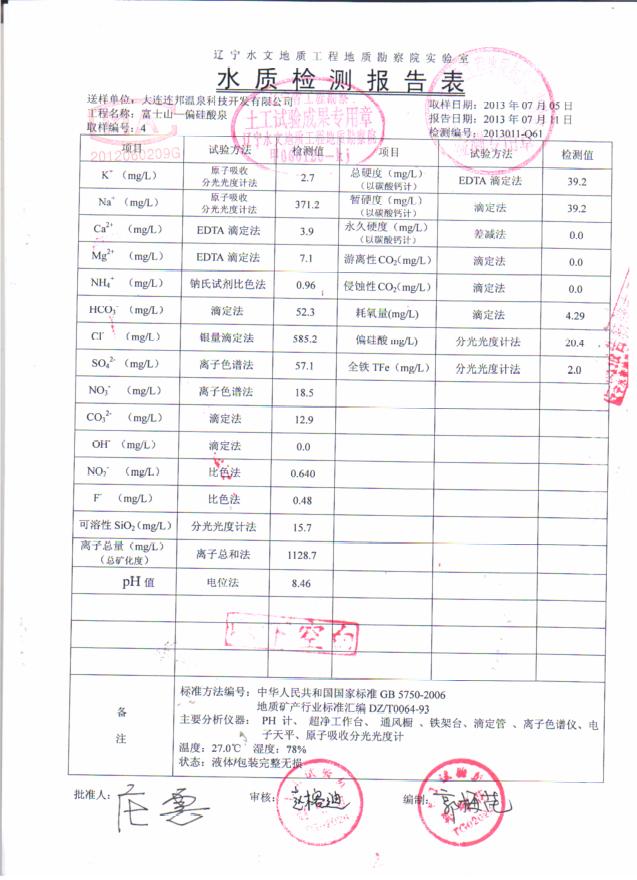 辽宁水文地质工程地质勘察院实验室
水质检测报告表
送样单位：大连连邦温泉科技开发有限公司 取样日期：2013年07月05日
工程名称：富士山—偏硅酸泉 报告日期：2013年07月11日
取样编号：4 检测编号：2013011-Q61
土工试验成果专用章
辽宁水文地质工程地质勘察院
2012060209G
项目 试验方法 检测值 项目 试验方法 检测值
K⁺（mg/L） 原子吸收分光光度计法 2.7 总硬度（mg/L）（以碳酸钙计） EDTA 滴定法 39.2
Na⁺（mg/L） 原子吸收分光光度计法 371.2 暂硬度（mg/L）（以碳酸钙计） 滴定法 39.2
Ca²⁺（mg/L） EDTA 滴定法 3.9 永久硬度（mg/L）（以碳酸钙计） 差减法 0.0
Mg²⁺（mg/L） EDTA 滴定法 7.1 游离性CO₂(mg/L) 滴定法 0.0
NH₄⁺（mg/L） 钠氏试剂比色法 0.96 侵蚀性CO₂(mg/L) 滴定法 0.0
HCO₃⁻（mg/L） 滴定法 52.3 耗氧量(mg/L) 滴定法 4.29
Cl⁻（mg/L） 银量滴定法 585.2 偏硅酸 mg/L) 分光光度计法 20.4
SO₄²⁻（mg/L） 离子色谱法 57.1 全铁 TFe（mg/L） 分光光度计法 2.0
NO₃⁻（mg/L） 离子色谱法 18.5
CO₃²⁻（mg/L） 滴定法 12.9
OH⁻（mg/L） 滴定法 0.0
NO₂⁻（mg/L） 比色法 0.640
F⁻（mg/L） 比色法 0.48
可溶性 SiO₂(mg/L) 分光光度计法 15.7
离子总量（mg/L）（总矿化度） 离子总和法 1128.7
pH 值 电位法 8.46
空白
备注
标准方法编号：中华人民共和国国家标准 GB 5750-2006
地质矿产行业标准汇编 DZ/T0064-93
主要分析仪器： PH 计、 超净工作台、 通风橱 、铁架台、滴定管 、离子色谱仪、电
子天平、原子吸收分光光度计
温度：27.0℃ 湿度：78%
状态：液体/包装完整无损
批准人： 审核： 编制：